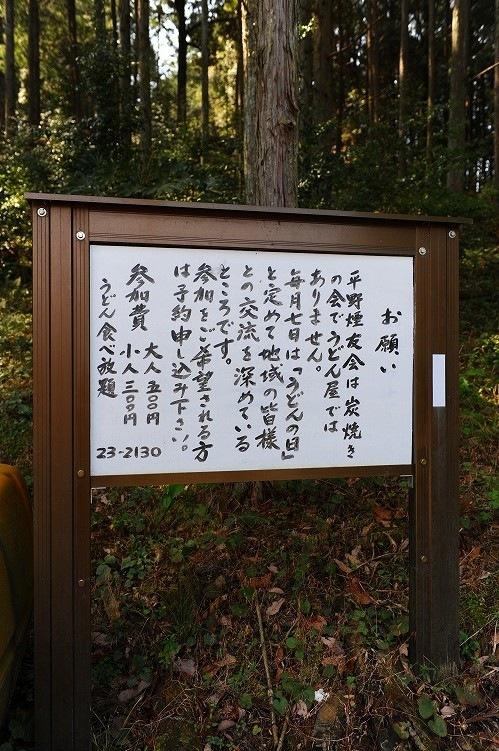 お願い
平野煙友会は炭焼き
の会でうどん屋では
ありません。
毎月七日は「うどんの日」
と定めて地域の皆様
との交流を深めている
ところです。
参加をご希望される方
は予約申し込み下さい。
参加費 大人 五〇〇円
小人 三〇〇円
うどん食べ放題
23-2130